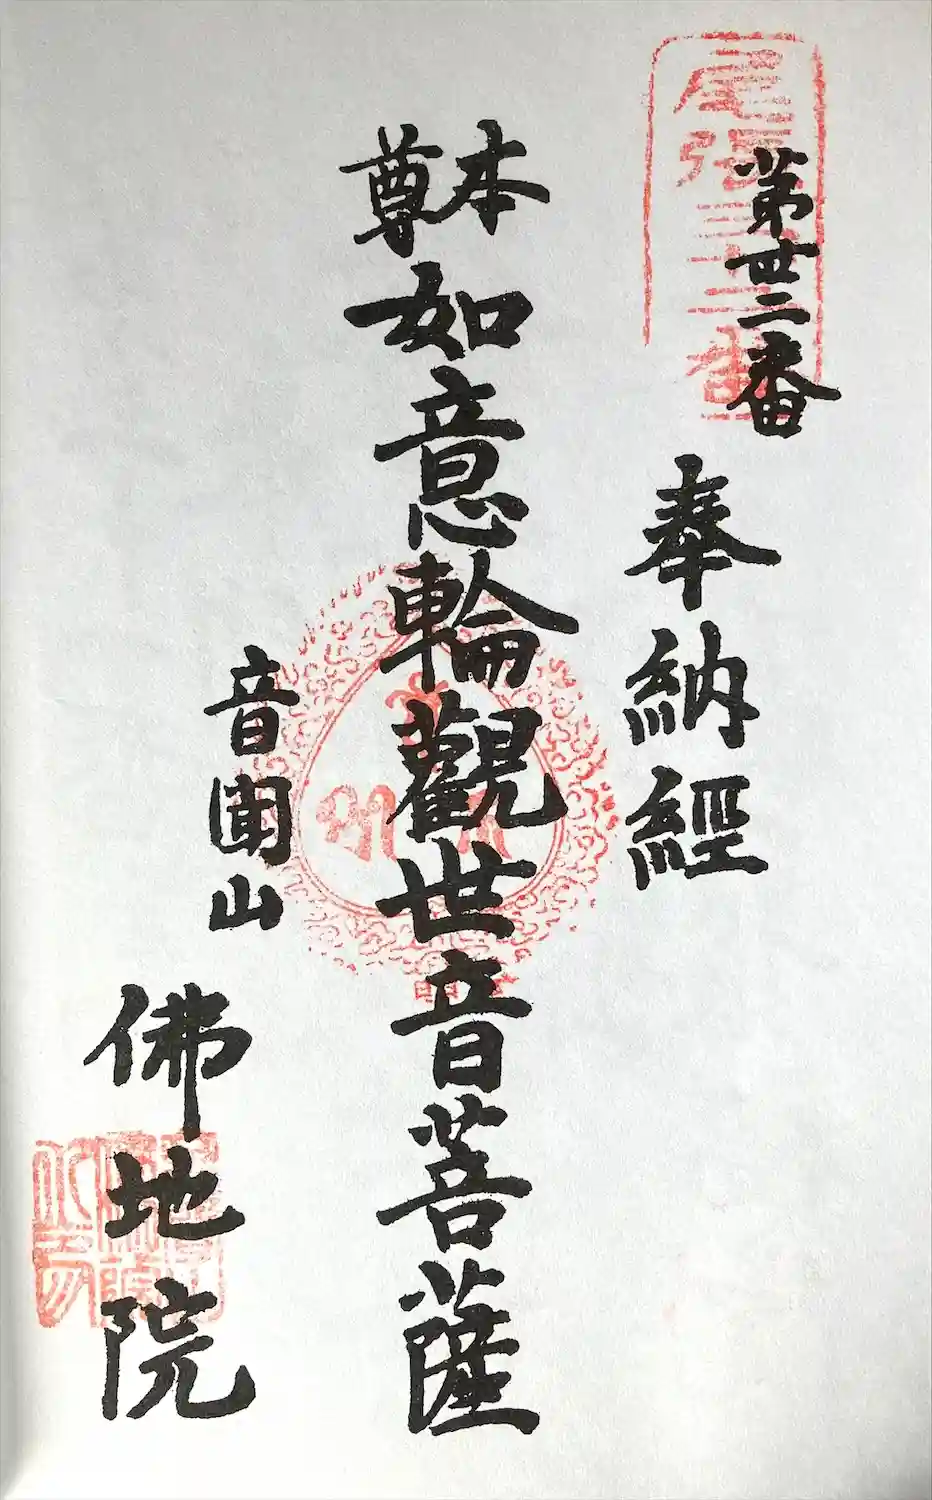 尾張三十三番
第丗二番
奉納經
本尊
如意輪觀世音菩薩
音聞山
佛地院